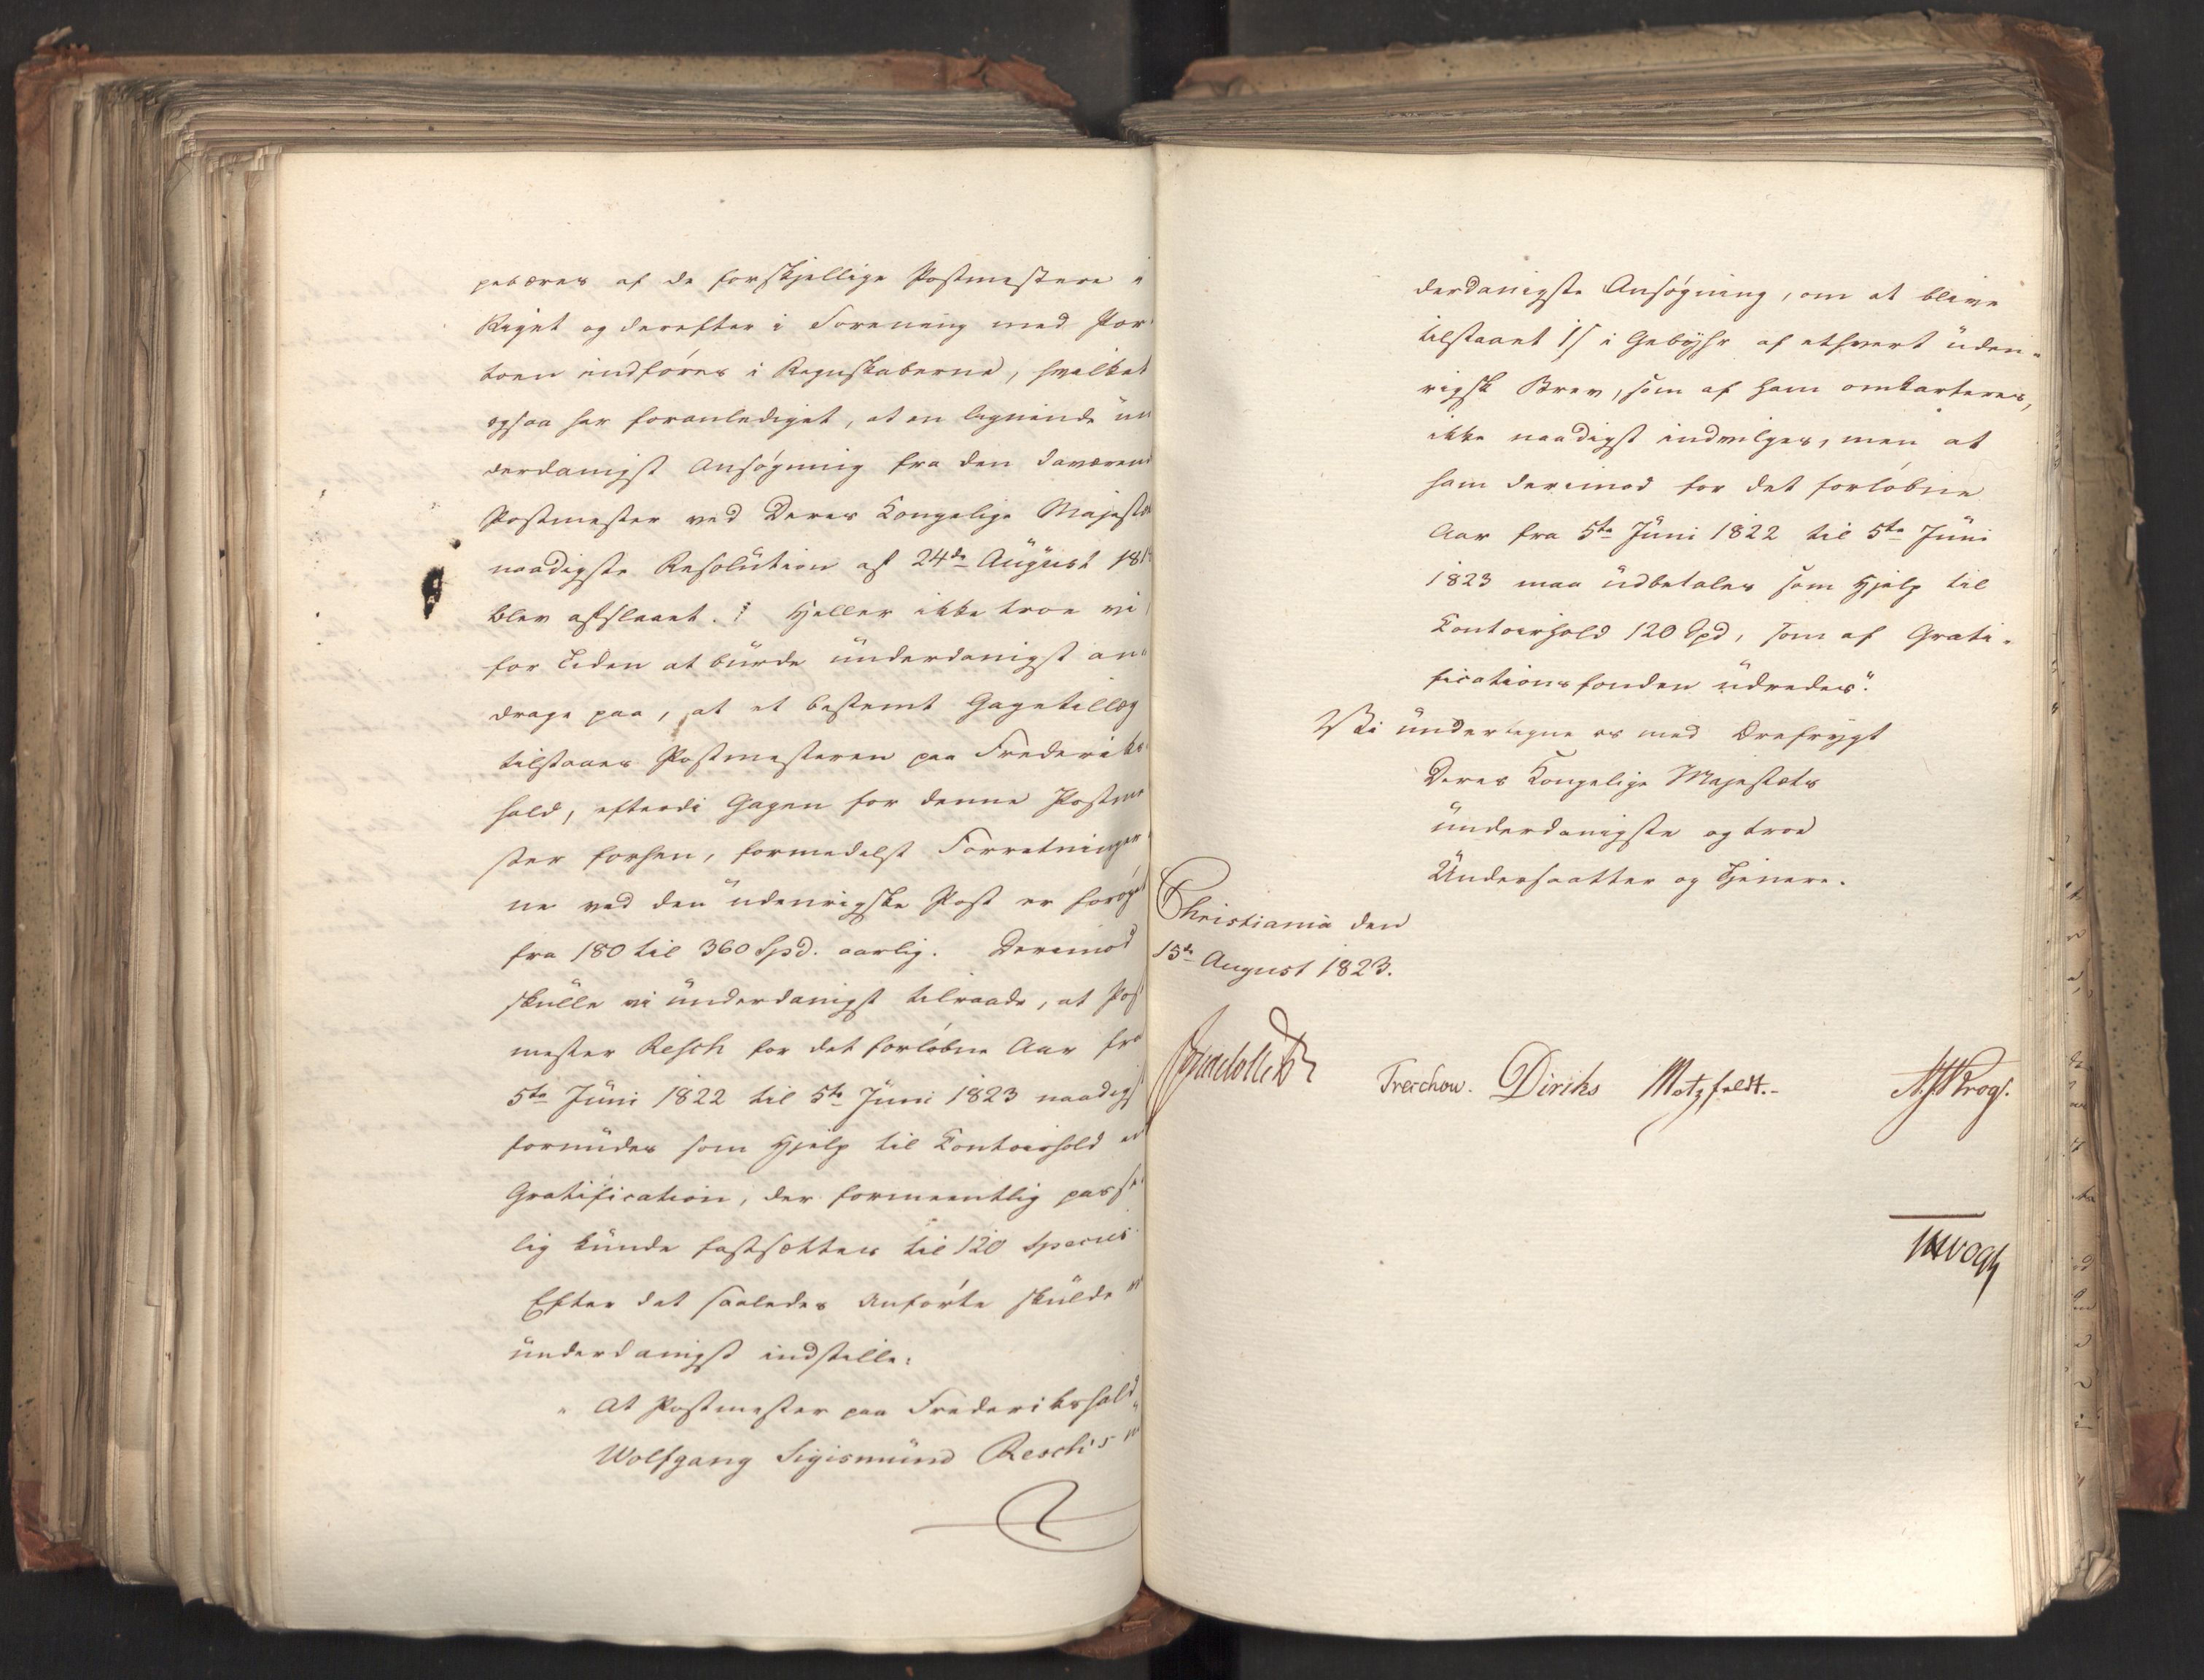 pebæres af de forskjellige Postmestere i
Riget og derefter i Forening med Por-
toen indføres i Regnskaberne, hvilket
ogsaa har foranlediget, at en lignende un
derdanigst Ansøgning fra den daværend
Postmester ved Deres Kongelige Majestæ
naadigste Resolution af 24de August 181
blev afslaaet. Heller ikke troe vi
for Tiden at burde underdanigst an-
drage paa, at et bestemt Gagetillæg
tilstaaes Postmesteren paa Frederiks
hald, efterdi Gagen for denne Postme
ster forhen, formedelst Forretninger
ne ved den udenrigske Post er forøget
fra 180 til 360 Spd. aarlig. Derimod
skulle vi underdanigst tilraade, at Post
mester Resch for det forløbne Aar fra
5te Juni 1822 til 5te Juni 1823 naadigst
forundes som Hjelp til Contoirhold en
Gratification, der formeentlig passe
lig kunde fastsættes til 120 Species.
Efter det saaledes Anførte skulde vi
underdanigst indstille:
" At Postmester paa Frederikshald
Wolfgang Sigismund Resch's un
derdanigste Ansøgning, om at blive
tilstaaet 1 s i Gebyhr af ethvert uden-
rigsk Brev, som af ham omkarteres,
ikke naadigst indvilges, men at
ham derimod for det forløbne
Aar fra 5te Juni 1822 til 5te Juni
1823 maa udbetales som Hjelp til
Contoirhold 120 Spd, som af Grati-
ficationsfonden udredes".
Vi undertegne os med Ærefrygt
Deres Kongelige Majestæts
underdanigste og troe
Undersaatter og Tjenere.
Christiania den
15de August 1823.
Treschow. Diriks Motzfeldt. Krog.
Vogt